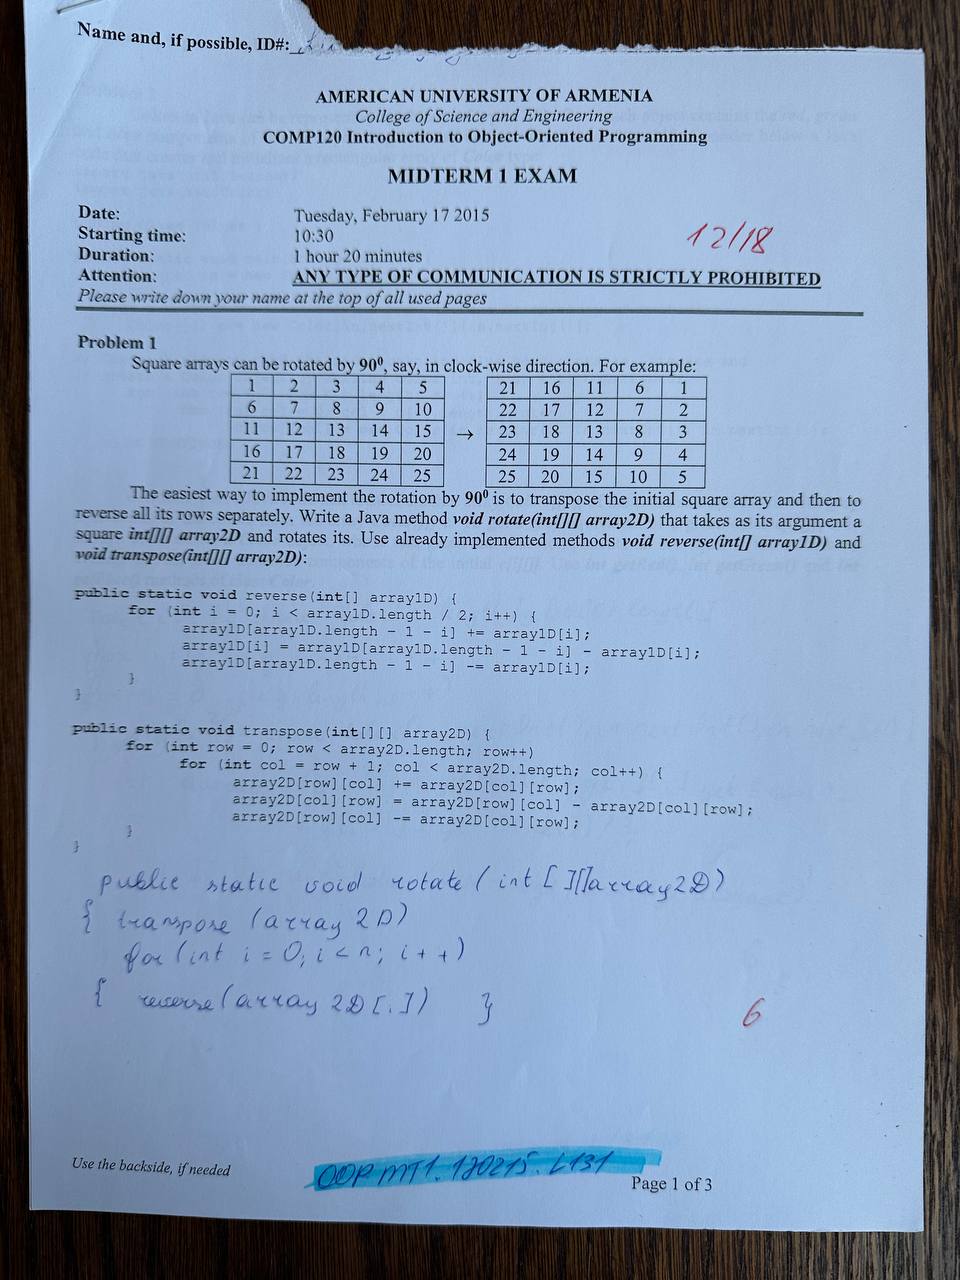 Name and, if possible, ID#:
AMERICAN UNIVERSITY OF ARMENIA
College of Science and Engineering
COMP120 Introduction to Object-Oriented Programming
MIDTERM 1 EXAM
Date: Tuesday, February 17 2015
Starting time: 10:30
12/18
Duration: 1 hour 20 minutes
Attention: ANY TYPE OF COMMUNICATION IS STRICTLY PROHIBITED
Please write down your name at the top of all used pages
Problem 1
Square arrays can be rotated by 90⁰, say, in clock-wise direction. For example:
1 2 3 4 5 21 16 11 6 1
6 7 8 9 10 22 17 12 7 2
11 12 13 14 15 → 23 18 13 8 3
16 17 18 19 20 24 19 14 9 4
21 22 23 24 25 25 20 15 10 5
The easiest way to implement the rotation by 90⁰ is to transpose the initial square array and then to
reverse all its rows separately. Write a Java method void rotate(int[][] array2D) that takes as its argument a
square int[][] array2D and rotates its. Use already implemented methods void reverse(int[] array1D) and
void transpose(int[][] array2D):
public static void reverse(int[] array1D) {
for (int i = 0; i < array1D.length / 2; i++) {
array1D[array1D.length - 1 - i] += array1D[i];
array1D[i] = array1D[array1D.length - 1 - i] - array1D[i];
array1D[array1D.length - 1 - i] -= array1D[i];
}
}
public static void transpose(int[][] array2D) {
for (int row = 0; row < array2D.length; row++)
for (int col = row + 1; col < array2D.length; col++) {
array2D[row][col] += array2D[col][row];
array2D[col][row] = array2D[row][col] - array2D[col][row];
array2D[row][col] -= array2D[col][row];
}
}
public static void rotate (int [][] array2D)
{ transpose (array 2D)
for (int i = 0; i < n; i++)
{ reverse (array 2D [.]) }
6
Use the backside, if needed
OOP MT1. 170215. L131
Page 1 of 3